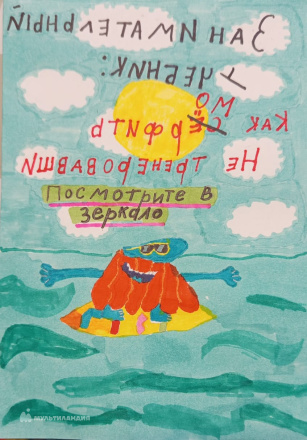 Занимательный
учебник:
Как сёрфить
Не тренеровавши
Посмотрите в
зеркало
МУЛЬТИЛАНДИЯ